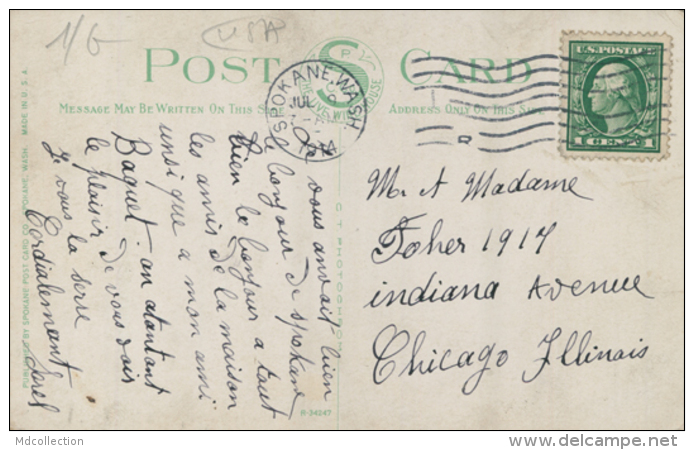 1/6
USA
POST CARD
MESSAGE MAY BE WRITTEN ON THIS SIDE
ADDRESS ONLY ON THIS SIDE
SPOKANE, WASH.
JUL
U.S. POSTAGE
1 CENT 1
Je vous anvait bien
le bonjour de spokane
bien le bonjour a tout
les amis de la maison
unsi que a mon ami
Baquet an atantant
le plaisir de vous
Je vous la serre
Cordialement
M. et Madame
Foher 1917
indiana Avenue
Chicago Illinais
PUBLISHED BY SPOKANE POST CARD CO., SPOKANE, WASH. MADE IN U.S.A.
C.T. PHOTOCHROM
R-34247
Mdcollection
www.delcampe.net